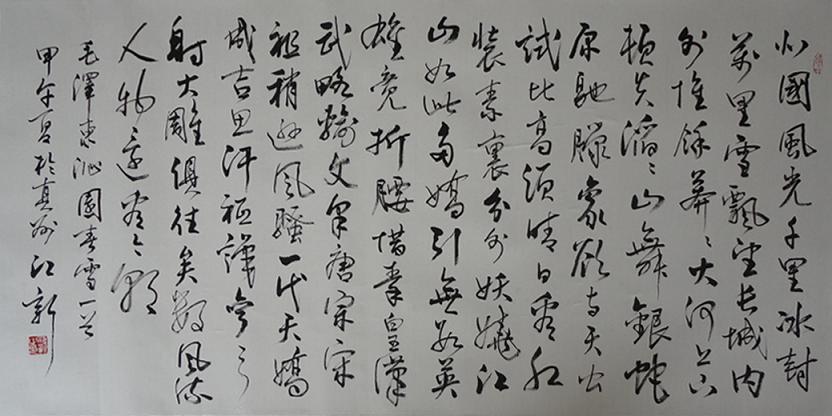 北國風光千里冰封
萬里雪飄望長城內
外惟餘莽〻大河上下
頓失滔〻山舞銀蛇
原馳臘象欲与天公
試比高須晴日看紅
裝素裹分外妖嬈江
山如此多嬌引無數英
雄竞折腰惜秦皇漢
武略輸文采唐宗宋
祖稍遜風騷一代天嬌
成吉思汗祗識彎弓
射大雕俱往矣數風流
人物還看今朝
毛澤東沁園春雪一首
甲午夏於真州江新